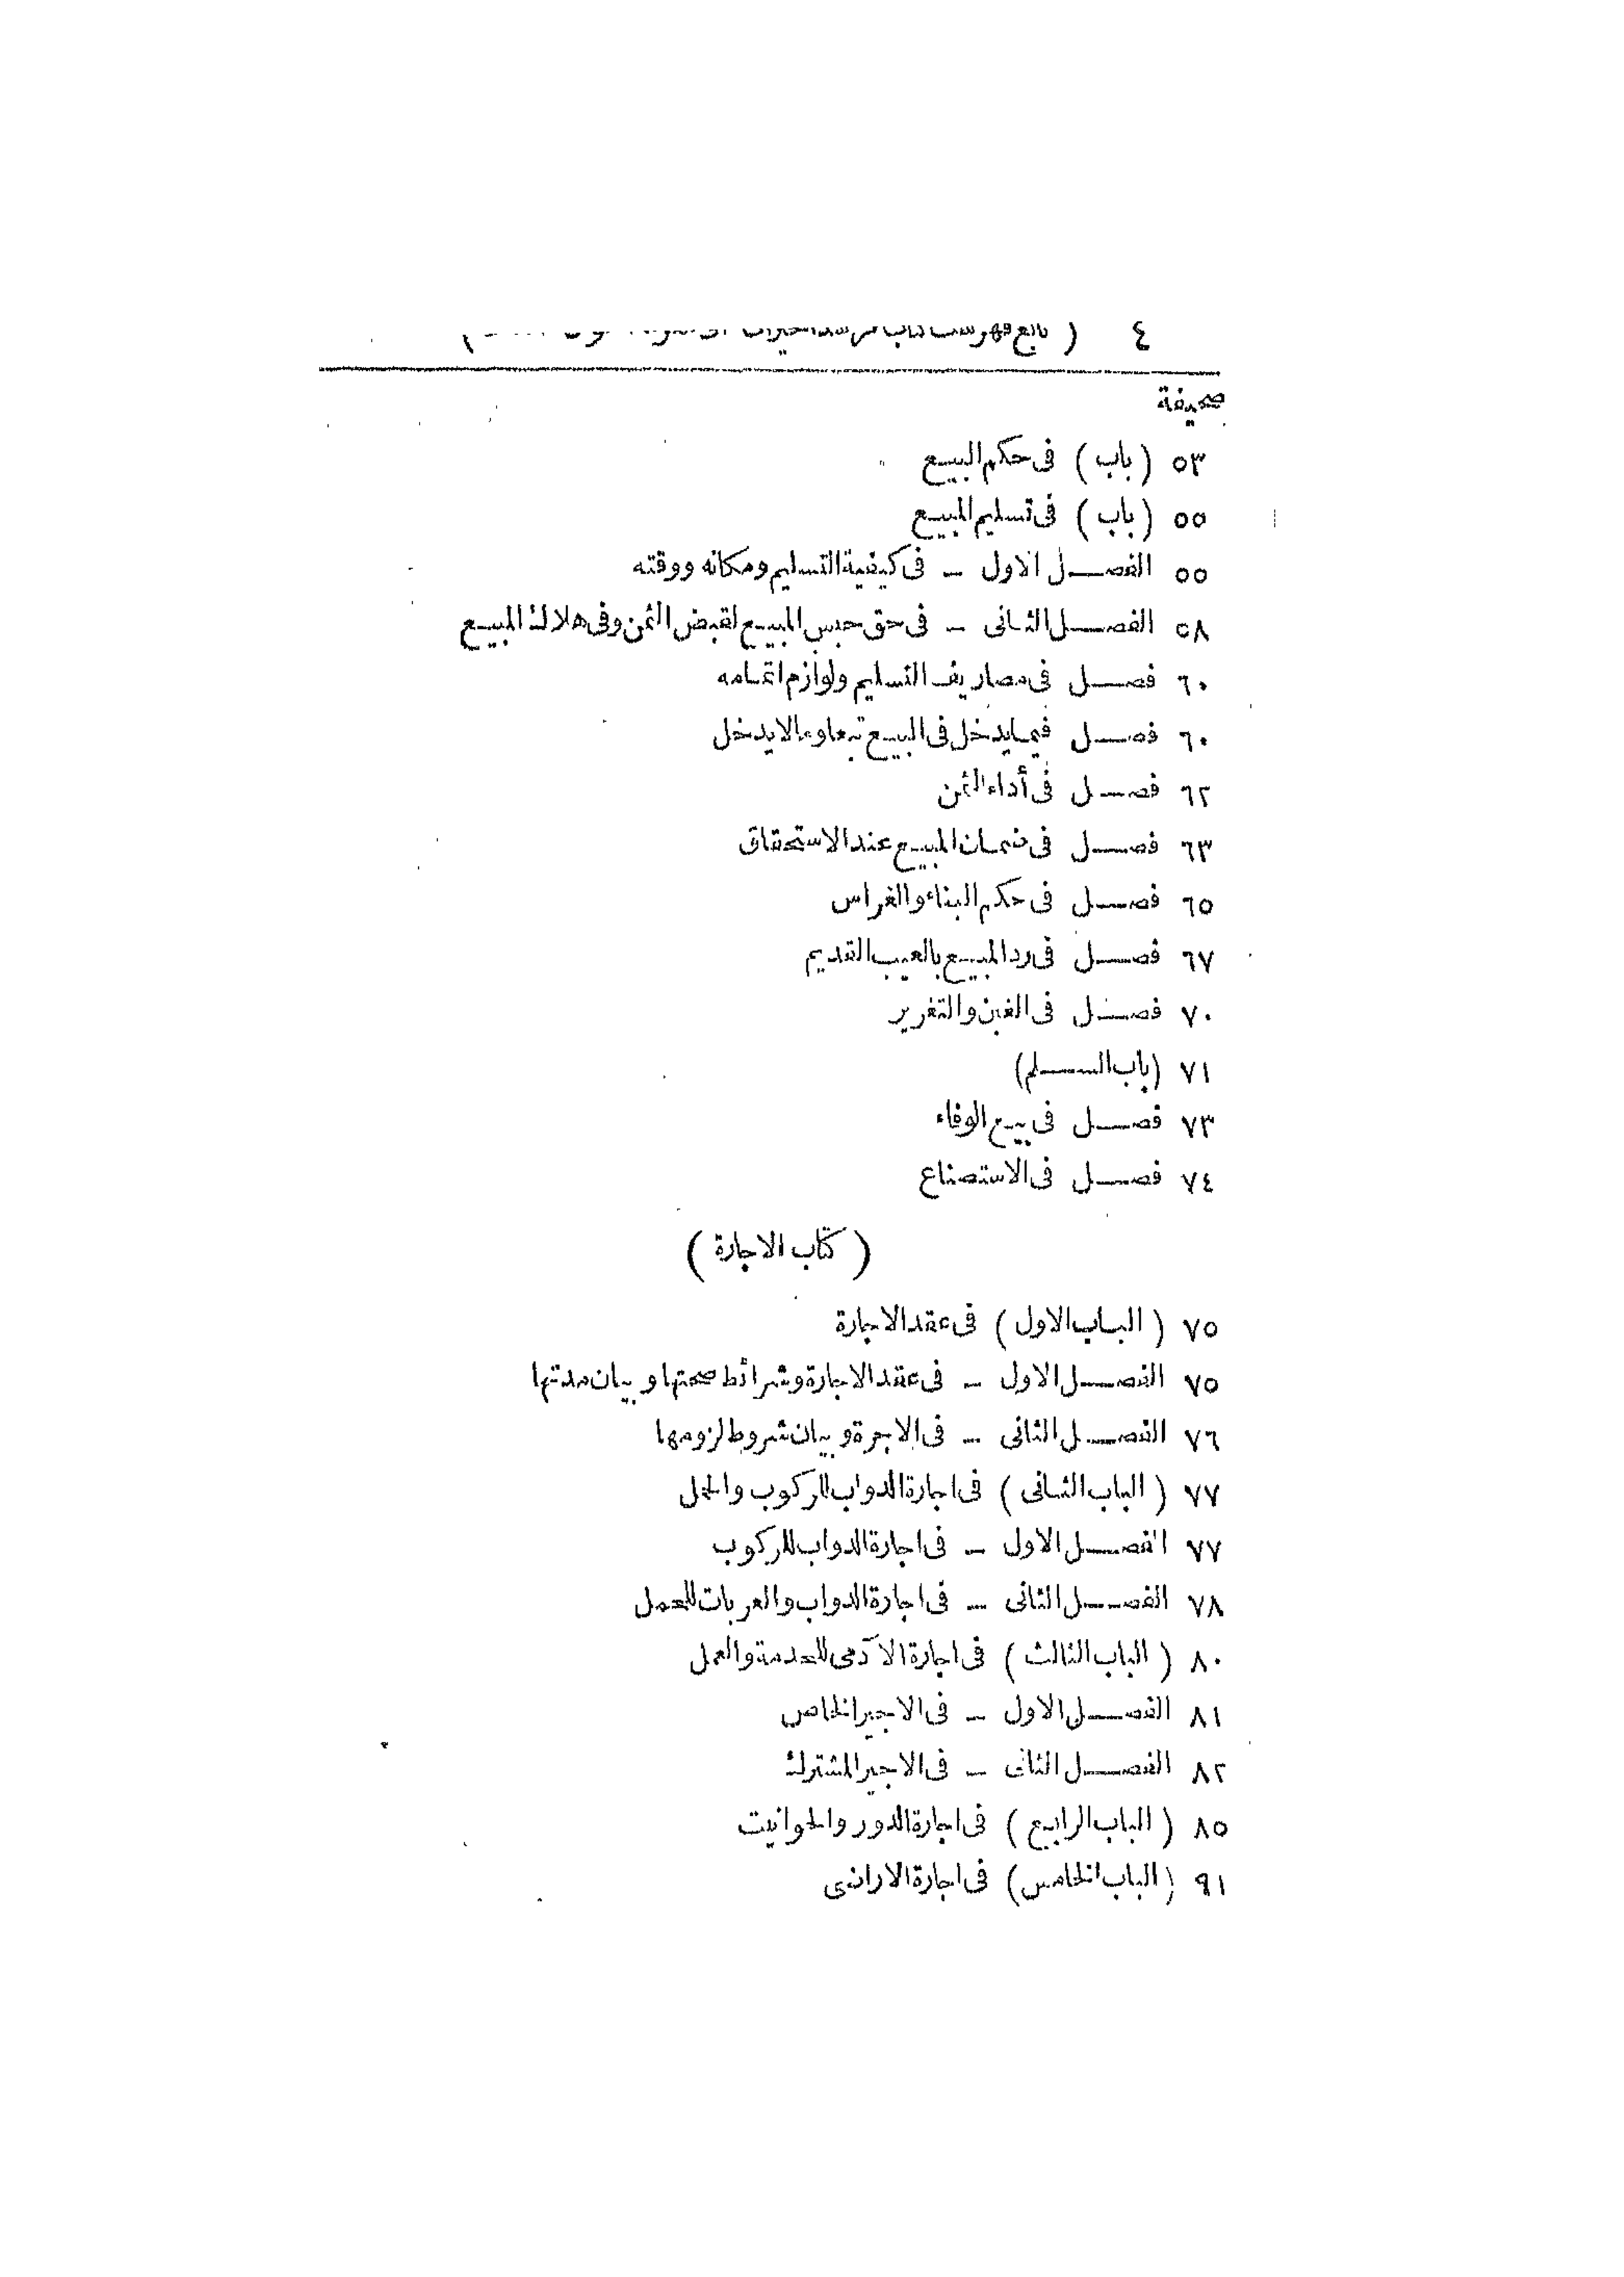 ٤ ( تابع فهرست كتاب مرشد الحيران )
صحيفة
٥٣ (باب) فى حكم البيع
٥٥ (باب) فى تسليم المبيع
٥٥ الفصل الاول - فى كيفية التسليم ومكانه ووقته
٥٨ الفصل الثانى - فى حق حبس المبيع لقبض الثمن وفى هلاك المبيع
٦٠ فصل فى مصاريف التسليم ولوازم اتمامه
٦٠ فصل فيما يدخل فى البيع تبعا وما لا يدخل
٦٢ فصل فى أداء الثمن
٦٣ فصل فى ضمان المبيع عند الاستحقاق
٦٥ فصل فى حكم البناء والغراس
٦٧ فصل فى رد المبيع بالعيب القديم
٧٠ فصل فى الغبن والتغرير
٧١ (باب السلم)
٧٣ فصل فى بيع الوفاء
٧٤ فصل فى الاستصناع
( كتاب الاجارة )
٧٥ ( الباب الاول ) فى عقد الاجارة
٧٥ الفصل الاول - فى عقد الاجارة وشرائط صحتها وبيان مدتها
٧٦ الفصل الثانى - فى الاجرة وبيان شروط لزومها
٧٧ ( الباب الثانى ) فى اجارة الدواب للركوب والحمل
٧٧ الفصل الاول - فى اجارة الدواب للركوب
٧٨ الفصل الثانى - فى اجارة الدواب والعربات للحمل
٨٠ ( الباب الثالث ) فى اجارة الآدمى للخدمة والعمل
٨١ الفصل الاول - فى الاجير الخاص
٨٢ الفصل الثانى - فى الاجير المشترك
٨٥ ( الباب الرابع ) فى اجارة الدور والحوانيت
٩١ ( الباب الخامس) فى اجارة الاراضى